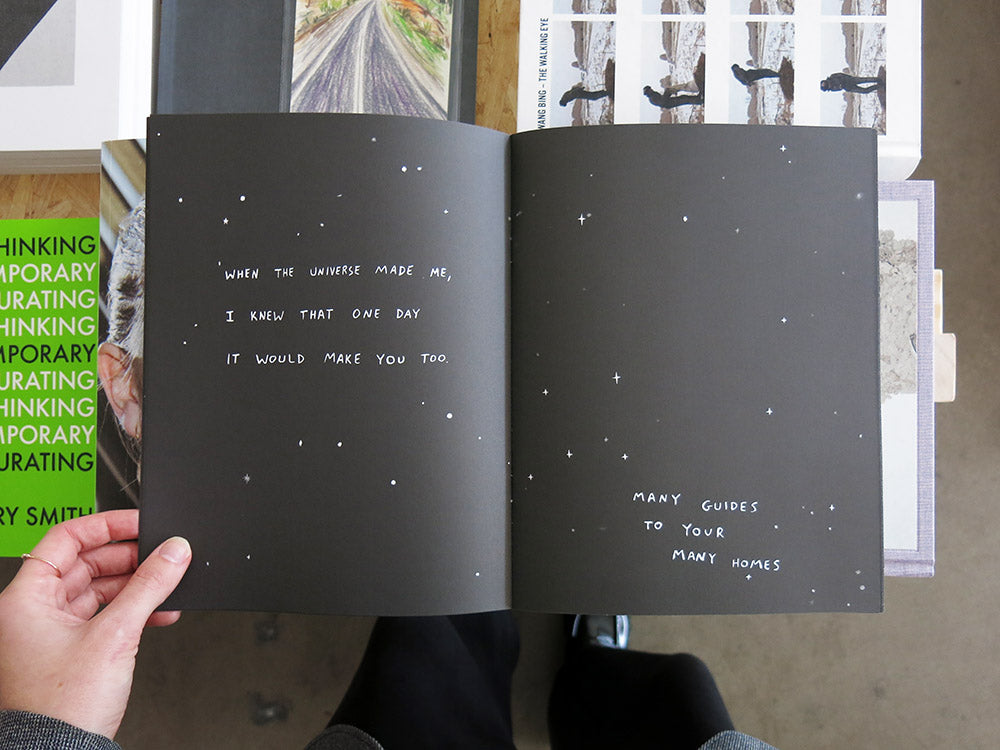 WANG BING – THE WALKING EYE
HINKING
MPORARY
URATING
HINKING
MPORARY
URATING
HINKING
MPORARY
URATING
RY SMITH
WHEN THE UNIVERSE MADE ME,
I KNEW THAT ONE DAY
IT WOULD MAKE YOU TOO.
MANY GUIDES
TO YOUR
MANY HOMES